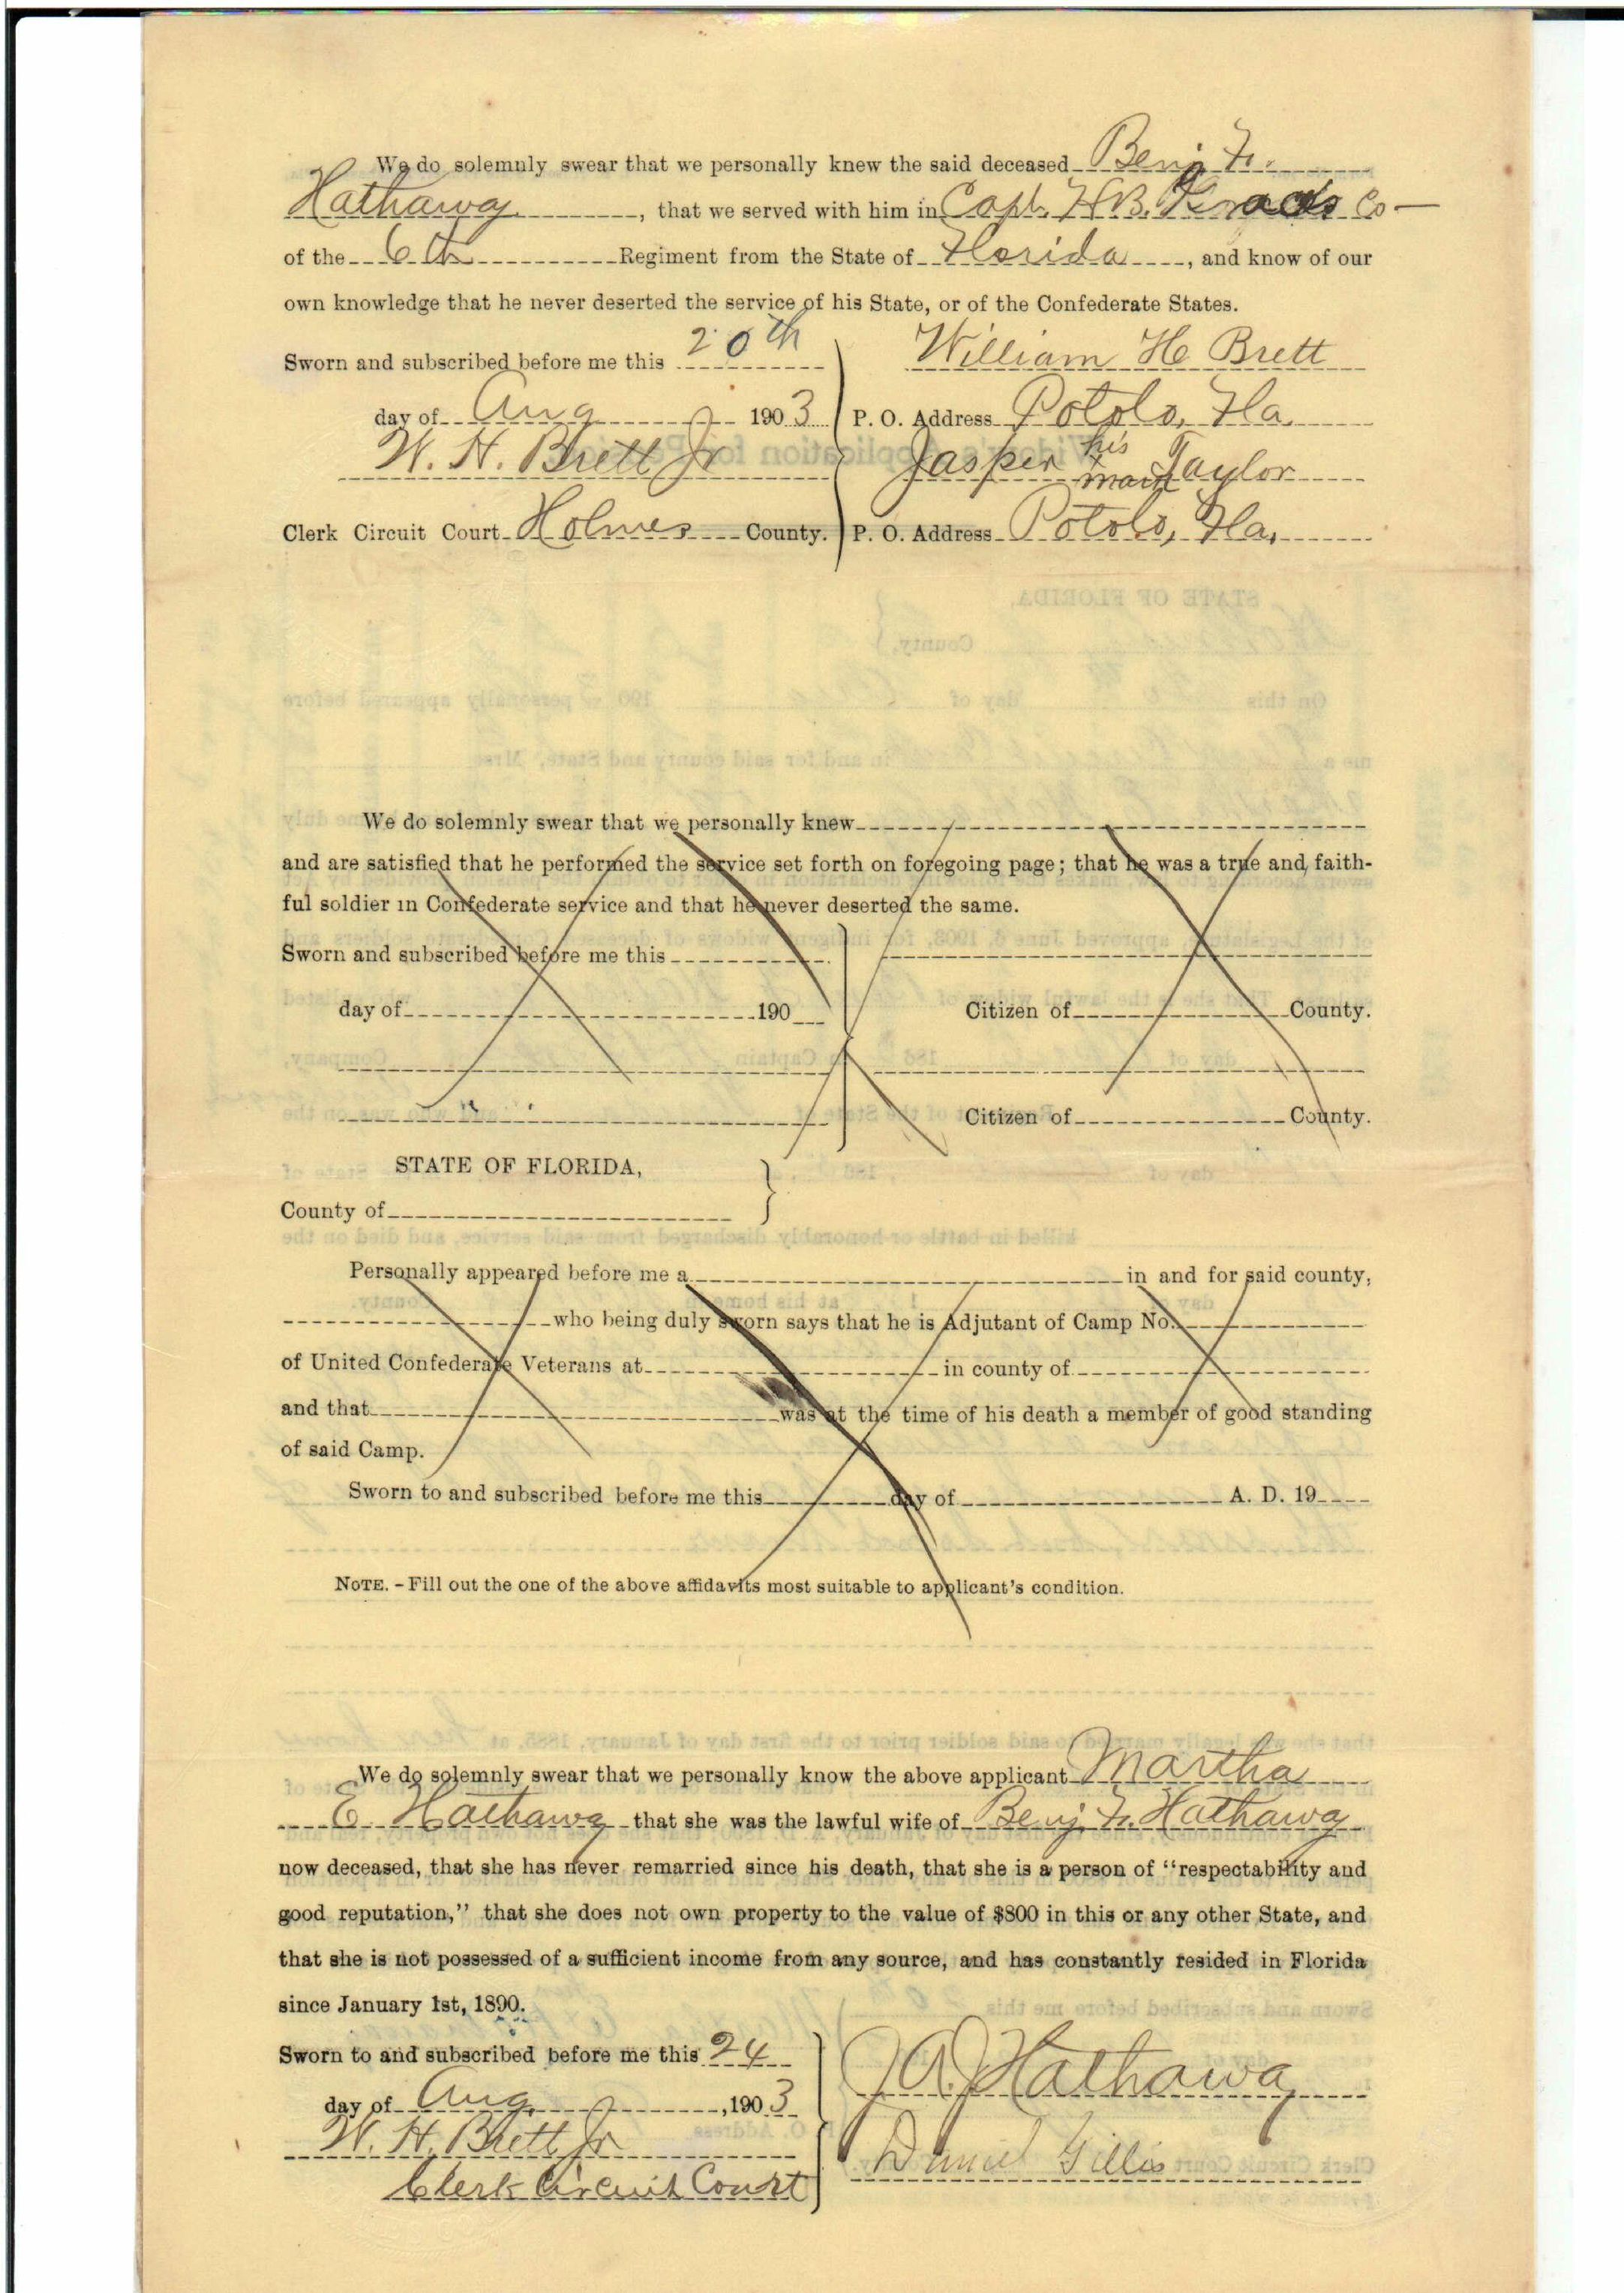 We do solemnly swear that we personally knew the said deceased Benj F.
Hathaway, that we served with him in Capt. H.B. Co
of the 6th Regiment from the State of Florida, and know of our
own knowledge that he never deserted the service of his State, or of the Confederate States.
Sworn and subscribed before me this 20th
day of Aug 1903
W. H. Brett Jr
Clerk Circuit Court Holmes County.
William H Brett
P. O. Address Potolo, Fla.
Jasper his mark Taylor
P. O. Address Potolo, Fla.
We do solemnly swear that we personally knew
and are satisfied that he performed the service set forth on foregoing page; that he was a true and faith-
ful soldier in Confederate service and that he never deserted the same.
Sworn and subscribed before me this
day of 190
Citizen of County.
Citizen of County.
STATE OF FLORIDA,
County of
Personally appeared before me a in and for said county,
who being duly sworn says that he is Adjutant of Camp No.
of United Confederate Veterans at in county of
and that was at the time of his death a member of good standing
of said Camp.
Sworn to and subscribed before me this day of A. D. 19
NOTE. - Fill out the one of the above affidavits most suitable to applicant's condition.
We do solemnly swear that we personally know the above applicant Martha
E. Hathaway that she was the lawful wife of Benj. F. Hathaway
now deceased, that she has never remarried since his death, that she is a person of "respectability and
good reputation," that she does not own property to the value of $800 in this or any other State, and
that she is not possessed of a sufficient income from any source, and has constantly resided in Florida
since January 1st, 1890.
Sworn to and subscribed before me this 24
day of Aug, 1903
W. H. Brett Jr
Clerk Circuit Court
J A Hathaway
Daniel Gillis